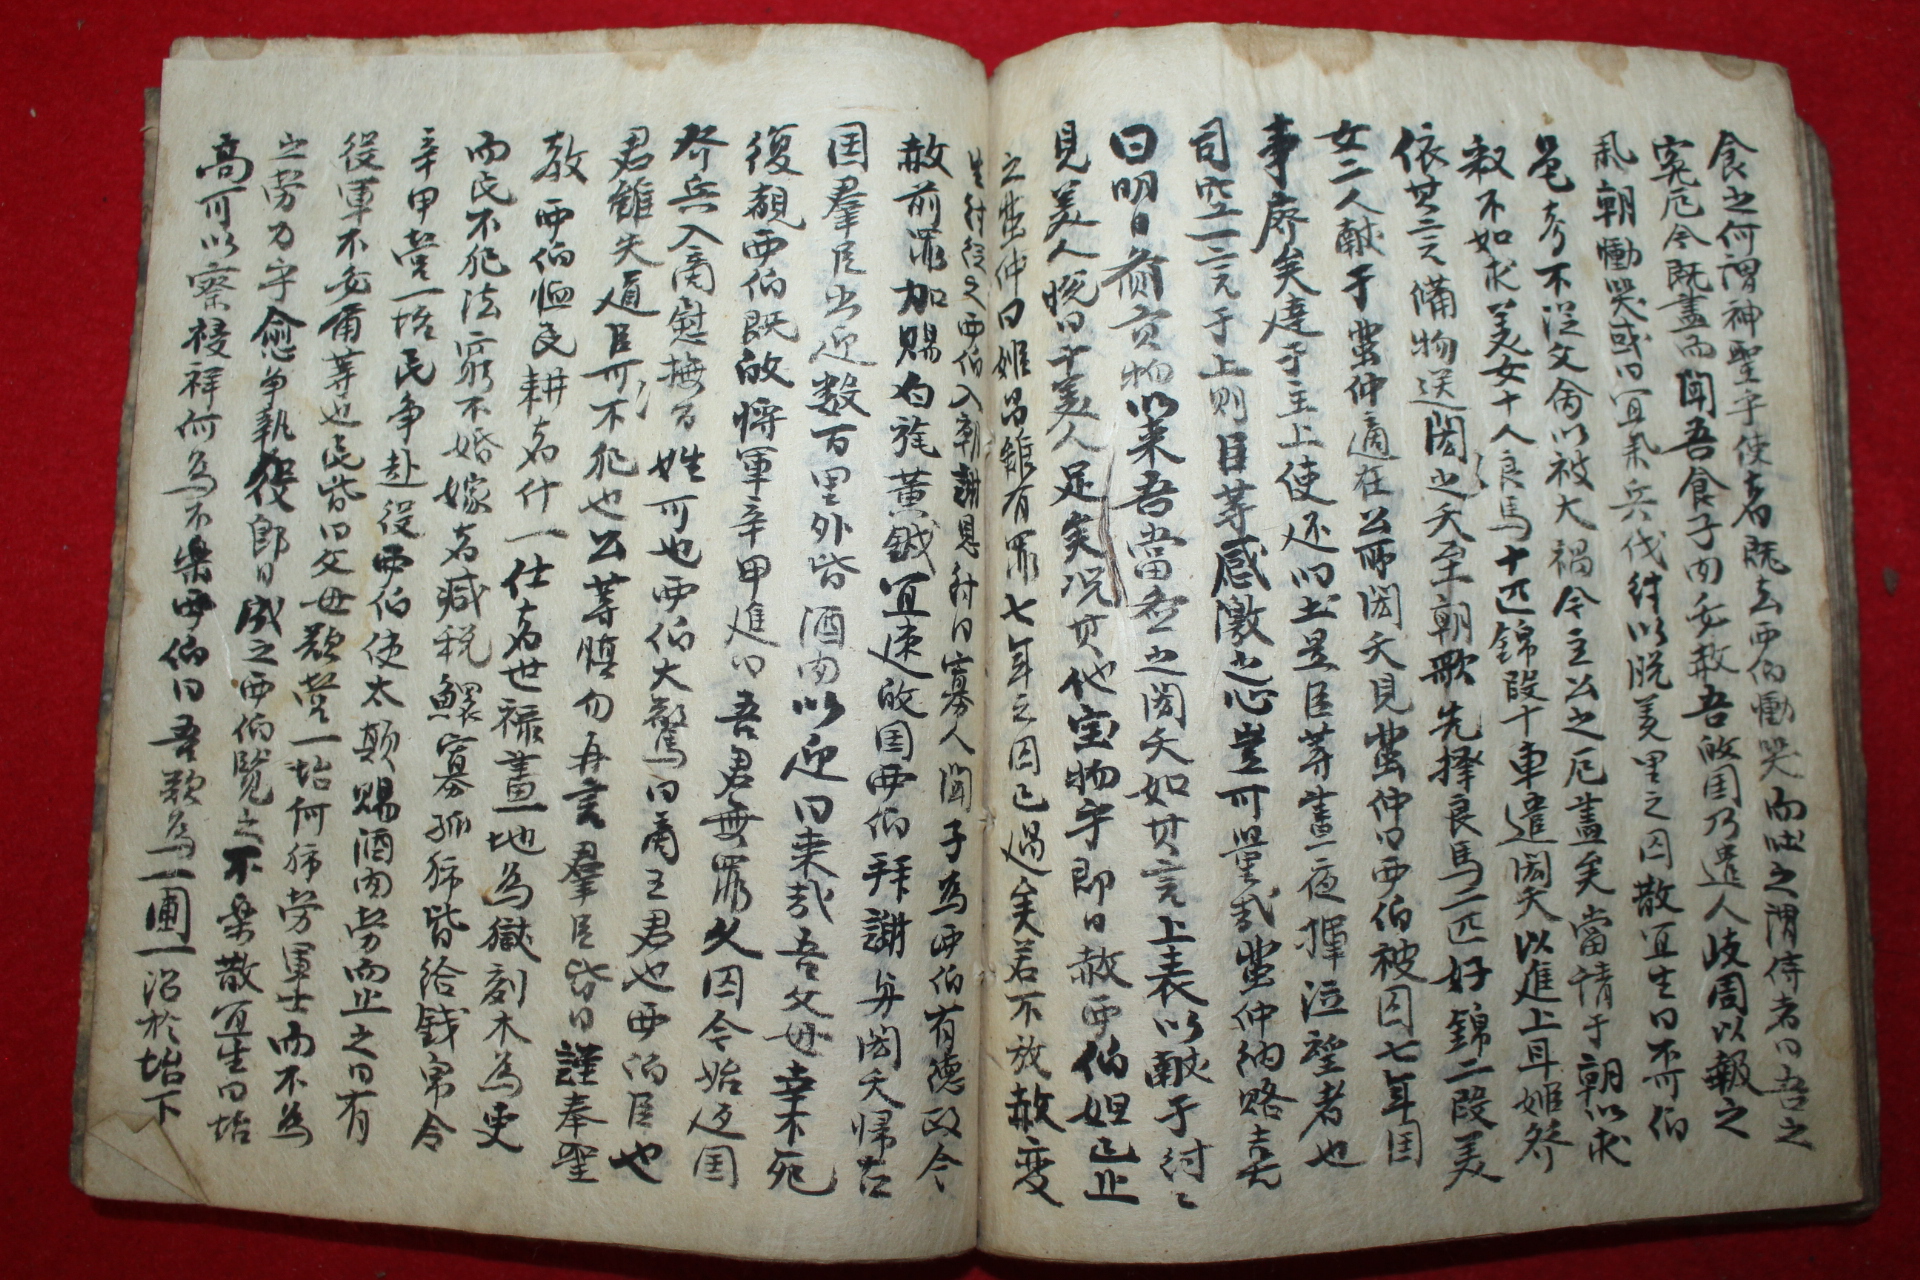 食之何謂神聖乎使者既去西伯慟哭而吐之謂侍者曰吾之
冤厄今既盡而聞吾食子肉必赦吾放國乃遣人岐周以報之
乱朝慟哭或曰宜氣兵伐紂以脫羑里之囚散宜生曰不可伯
邑考不從文命以被大禍今主公之厄盡矣當情于朝以求
赦不如求美女十人良馬十匹錦段十車遣閎夭以進上耳姬發
依其言備物送閎之夭至朝歌先擇良馬二匹好錦二段美
女二人献于蜚仲適在公所閎夭見蜚仲曰西伯被囚七年国
事廢矣達于主上使还旧土是臣等晝夜揮泣望者也
司空一言于上則目等感激之心豈可量哉蜚仲納賂
曰明日齎貢物以来吾當奏之閎夭如其言上表以献于紂々
見美人悅曰十美人足矣况其他宝物乎即日赦西伯妲己止
之蜚仲曰姬昌雖有罪七年之囚已過矣若不放赦变
生紂從之西伯入朝謝恩紂曰寡人聞子為西伯有德政今
赦前罪加賜白旄黃鉞宜速放国西伯拜謝与閎夭歸
国羣臣出迎数百里外皆酒肉以迎曰来哉吾父母幸不死
復覩西伯既放將軍辛甲進曰吾君無罪久囚今始还国
各兵入商慰撫百姓可也西伯大驚曰商王君也西伯臣也
君雖失道臣可不犯也公等愼勿再言羣臣皆曰謹奉聖
教西伯恤民耕者什一仕者世祿畫地為獄刻木為吏
而民不犯法窮不婚嫁者减税鰥寡孤独皆給錢帛令
辛甲営一坮民争赴役西伯使太顛賜酒肉劳而止之曰有
役軍不必爾等也民皆曰父母欲営一坮何独劳軍士而不為
之劳力乎愈争執役即日成之西伯覧之不楽散宜生曰坮
高可以察祲祥何為不楽西伯曰吾欲為一囿一沼於坮下